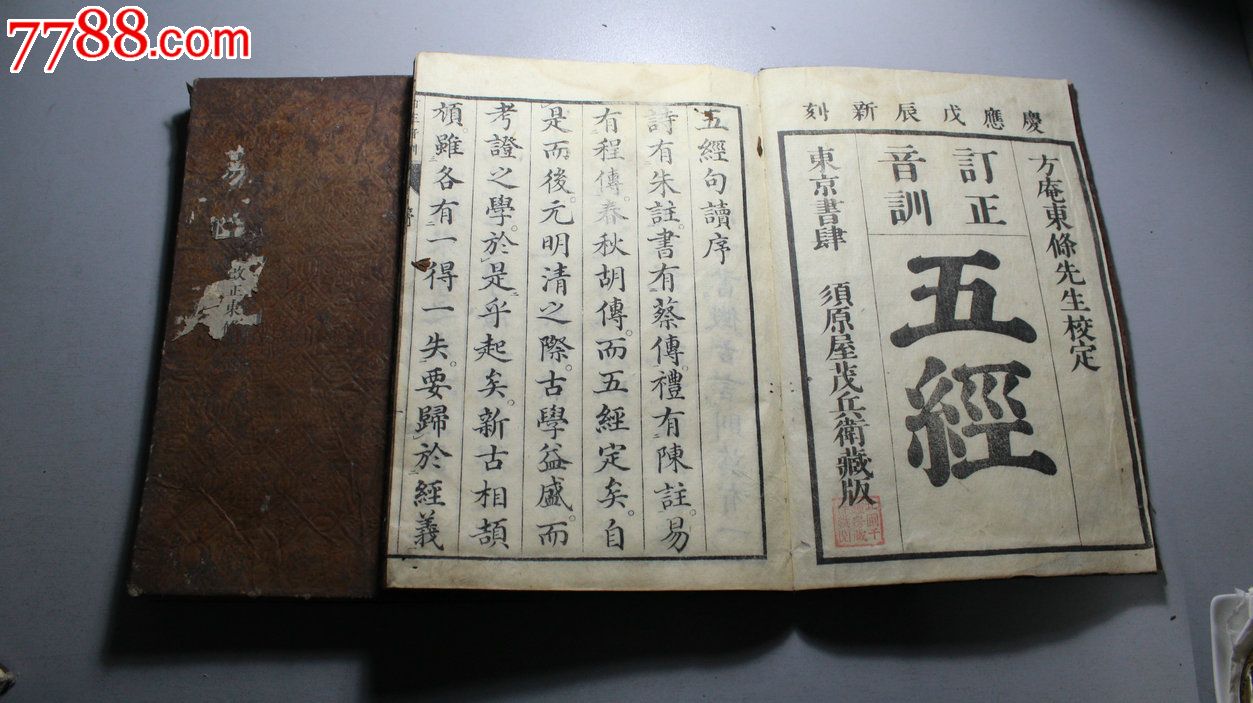 7788.com
慶應戊辰新刻
方庵東條先生校定
訂正
音訓
五經
東京書肆 須原屋茂兵衛藏版
五經句讀序
詩有朱註。書有蔡傳。禮有陳註。易
有程傳。春秋胡傳。而五經定矣。自
是而後。元明清之際。古學益盛。而
考證之學。於是乎起矣。新古相頡
頏。雖各有一得一失。要歸於經義
易
改正東